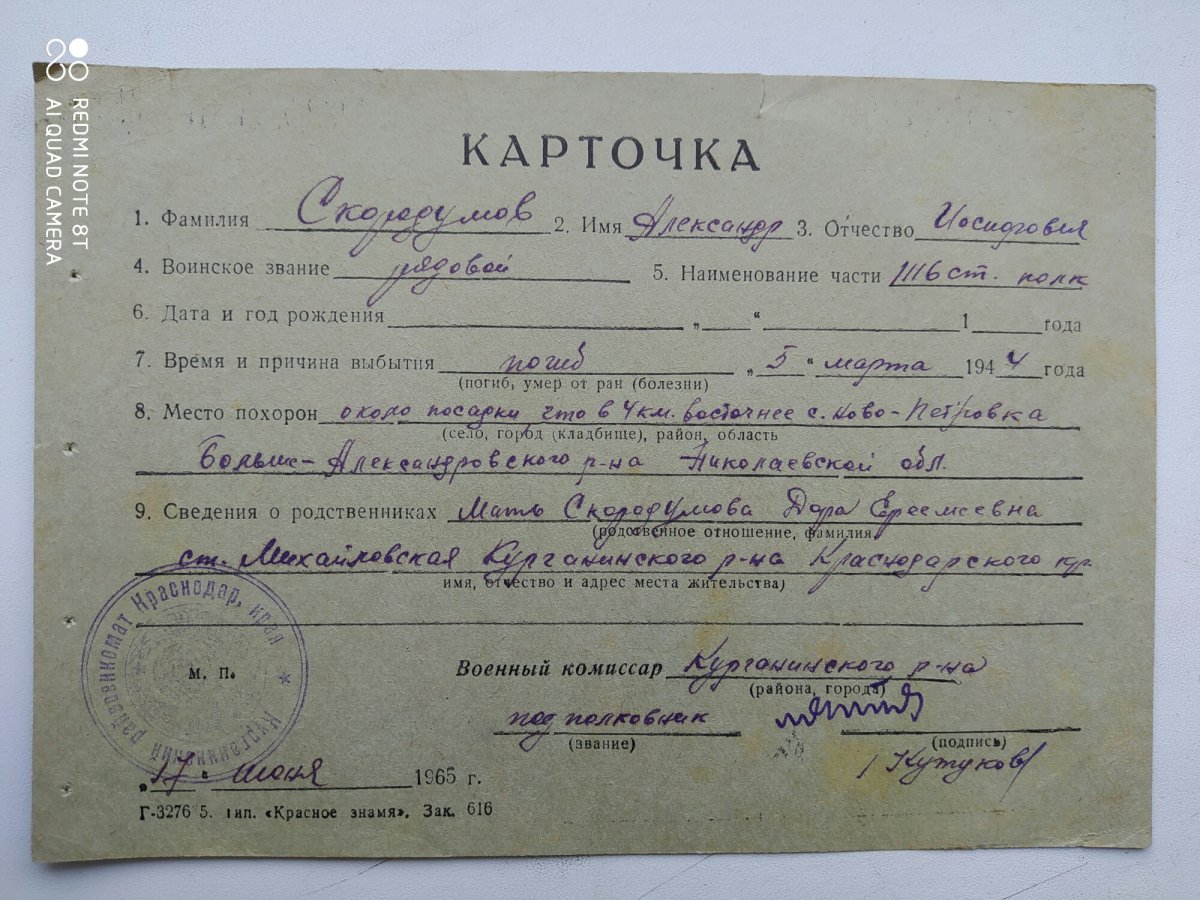 REDMI NOTE 8T
AI QUAD CAMERA
КАРТОЧКА
1. Фамилия Скородумов 2. Имя Александр 3. Отчество Иосифович
4. Воинское звание рядовой 5. Наименование части 1116 ст. полк
6. Дата и год рождения „ “ 1 года
7. Время и причина выбытия погиб „ 5 “ марта 1944 года
(погиб, умер от ран (болезни)
8. Место похорон около посадки что в 4 км. восточнее с. Ново-Петровка
(село, город (кладбище), район, область
Больше-Александровского р-на Николаевской обл.
9. Сведения о родственниках Мать Скородумова Дара Ереемеевна
(родственное отношение, фамилия,
ст. Михайловская Курганинского р-на Краснодарского кр.
имя, отчество и адрес места жительства)
Курганинский райвоенкомат Краснодар. края
М. П.
Военный комиссар Курганинского р-на
(района, города)
подполковник
(звание) (подпись)
/Кутуков/
„ 17 “ июня 1965 г.
Г-3276 5. тип. «Красное знамя». Зак. 616